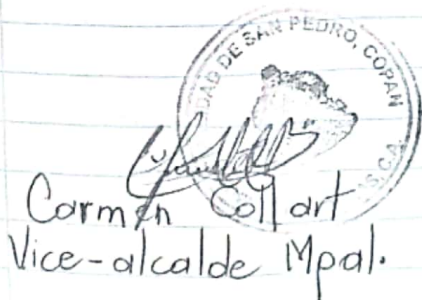 DAD DE SAN PEDRO, COPAN
S.C.A.
Carmen Collart
Vice-alcalde Mpal.